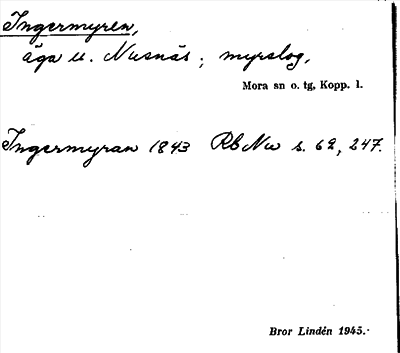 Ingermyren,
äga u. Nusnäs; myrslog,
Mora sn o. tg, Kopp. l.
Ingermyran 1843 RbNu s. 62, 247.
Bror Lindén 1945.